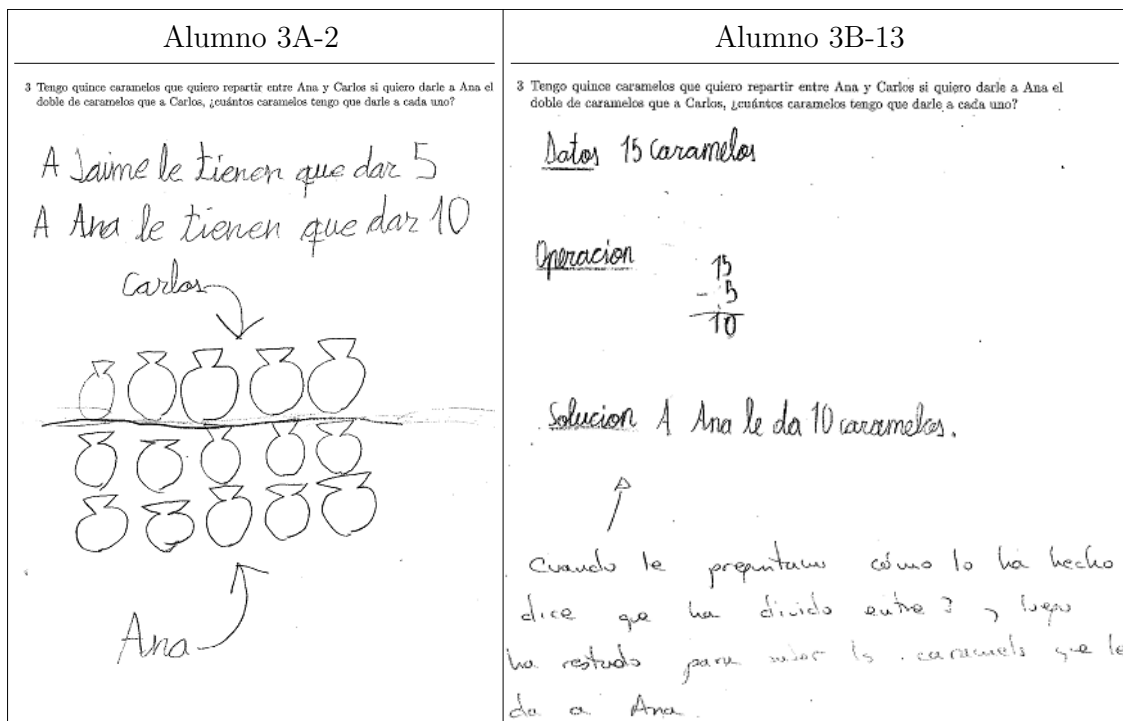 Alumno 3A-2
3 Tengo quince caramelos que quiero repartir entre Ana y Carlos si quiero darle a Ana el
doble de caramelos que a Carlos, ¿cuántos caramelos tengo que darle a cada uno?
A Jaime le tienen que dar 5
A Ana le tienen que dar 10
Carlos
Ana
Alumno 3B-13
3 Tengo quince caramelos que quiero repartir entre Ana y Carlos si quiero darle a Ana el
doble de caramelos que a Carlos, ¿cuántos caramelos tengo que darle a cada uno?
Datos 15 caramelos
Operacion
15
- 5
10
Solucion A Ana le da 10 caramelos.
Cuando le preguntamos cómo lo ha hecho
dice que ha divido entre 3 y luego
ha restado para los caramels que le
da a Ana.